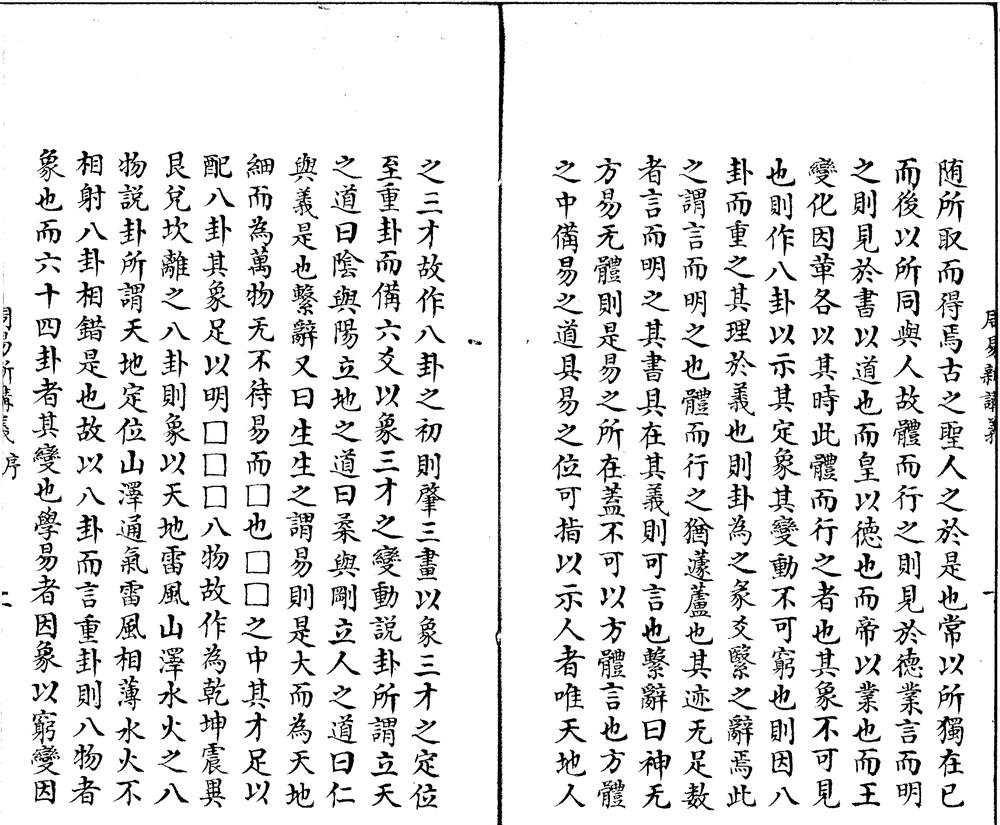 随所取而得焉古之聖人之於是也常以所獨在已
而後以所同與人故體而行之則見於徳業言而明
之則見於書以道也而皇以徳也而帝以業也而王
變化因革各以其時此體而行之者也其象不可見
也則作八卦以示其定象其變動不可窮也則因八
卦而重之其理於義也則卦為之彖爻繫之辭焉此
之謂言而明之也體而行之猶蘧蘆也其迹无足数
者言而明之其書具在其義則可言也繫辭曰神无
方易无體則是易之所在蓋不可以方體言也方體
之中備易之道具易之位可指以示人者唯天地人
之三才故作八卦之初則肇三畫以象三才之定位
至重卦而備六爻以象三才之變動説卦所謂立天
之道曰陰與陽立地之道曰柔與剛立人之道曰仁
與義是也繫辭又曰生生之謂易則是大而為天地
細而為萬物无不待易而□也□□之中其才足以
配八卦其象足以明□□□八物故作為乾坤震巽
艮兌坎離之八卦則象以天地雷風山澤水火之八
物説卦所謂天地定位山澤通氣雷風相薄水火不
相射八卦相錯是也故以八卦而言重卦則八物者
象也而六十四卦者其變也學易者因象以窮變因